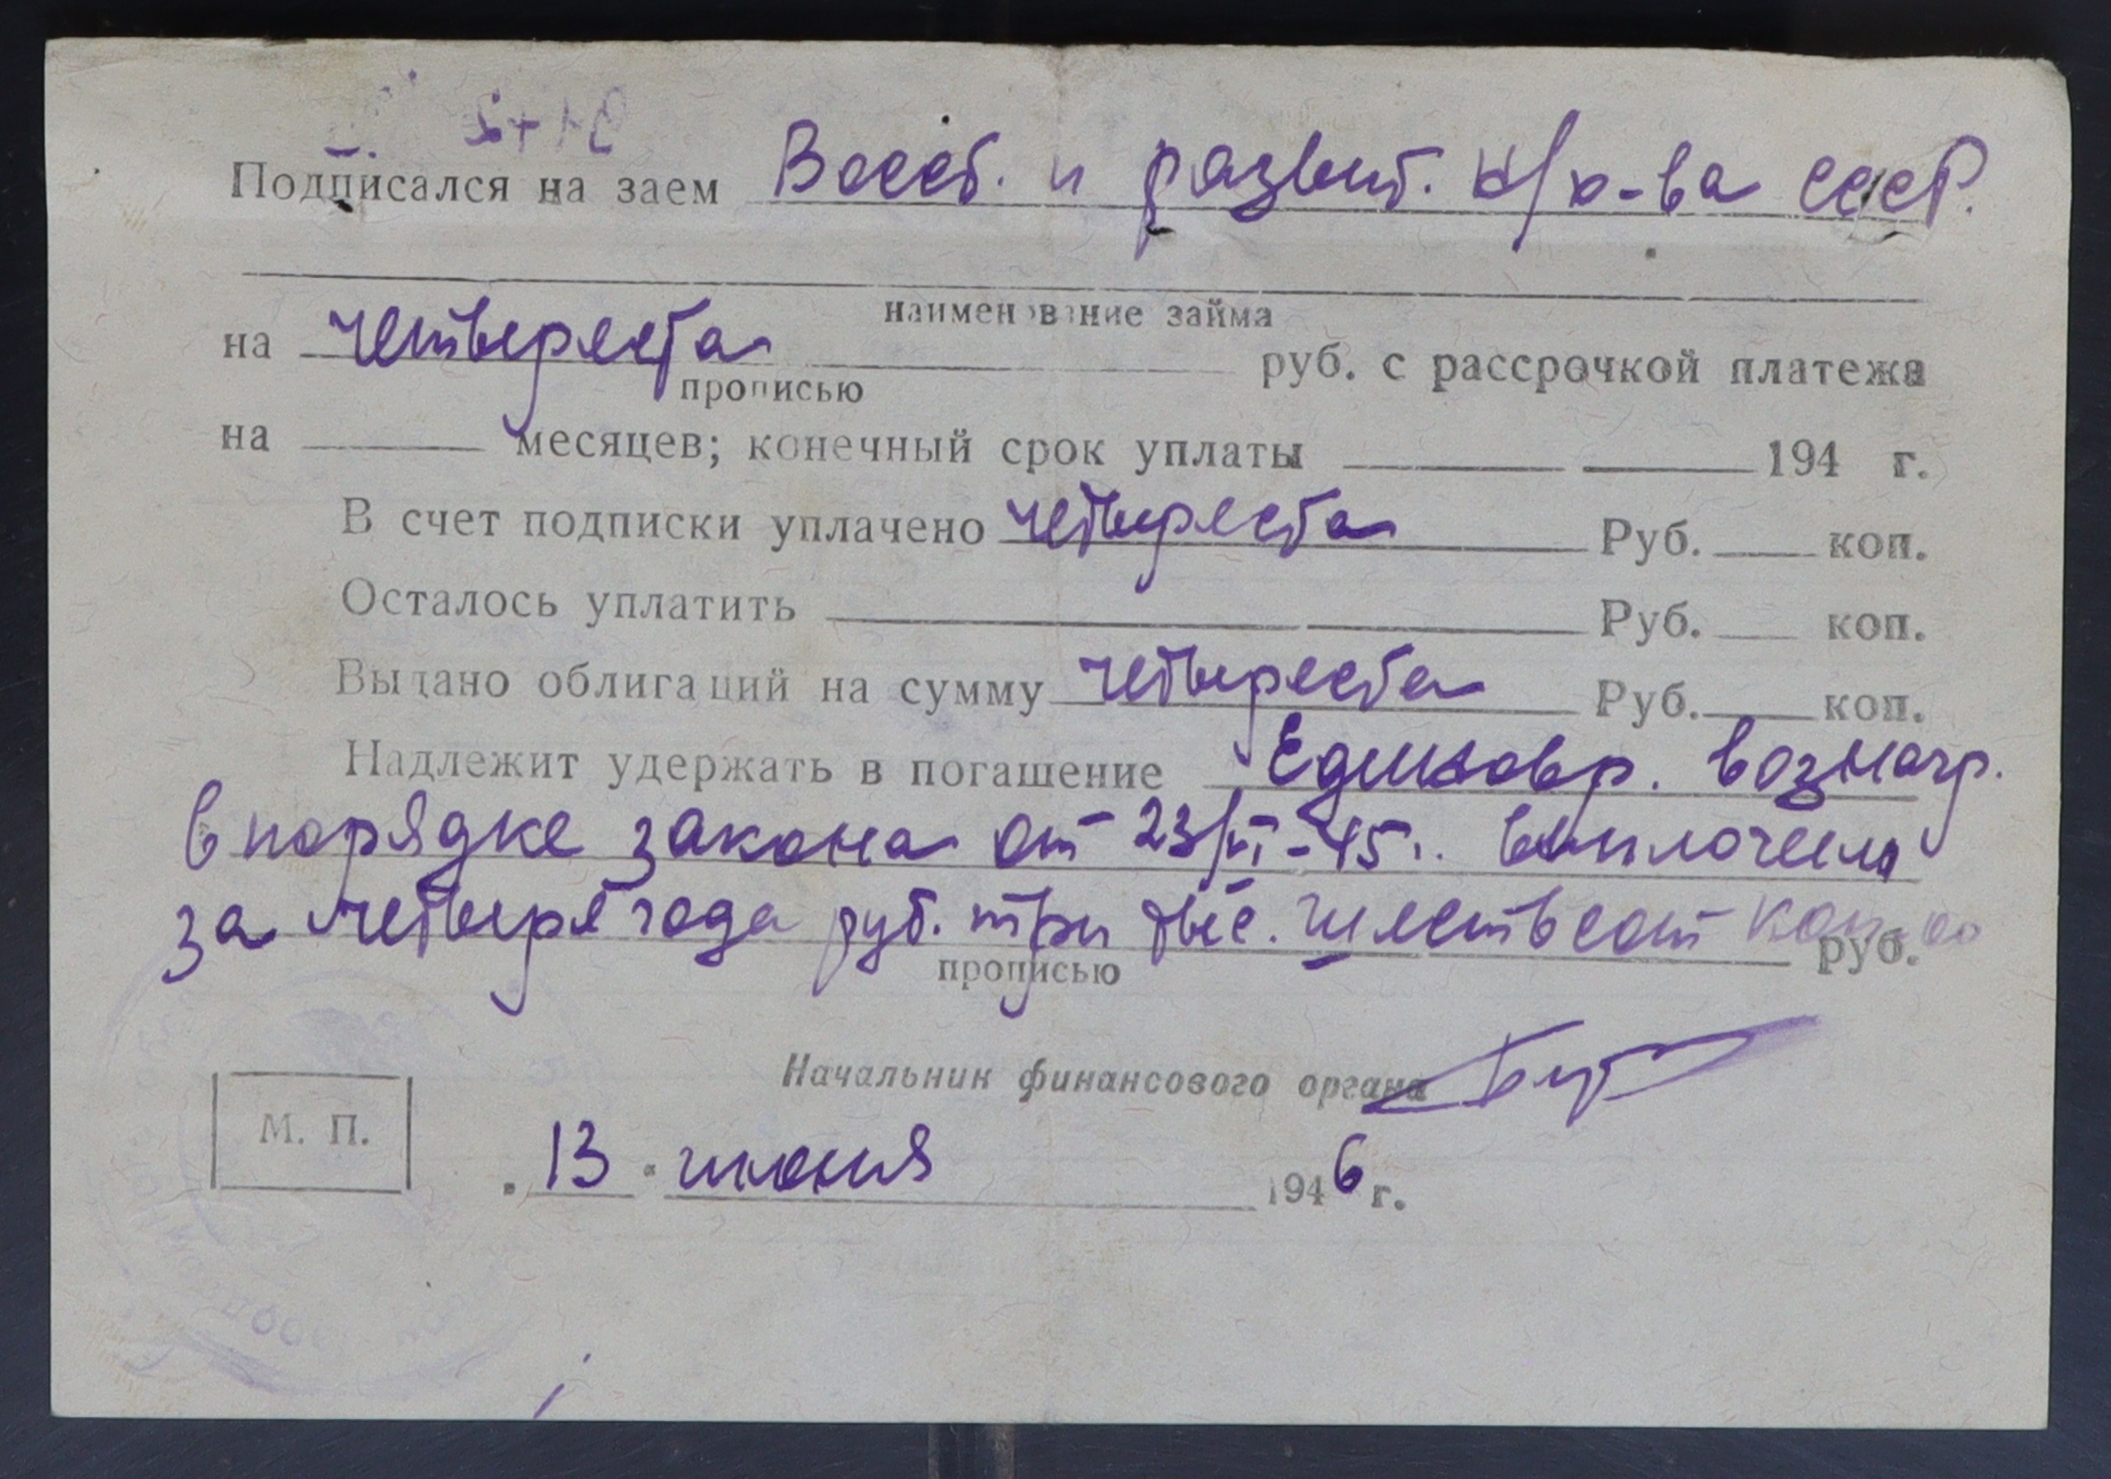 Подписался на заем Восст. и развит. н/х-ва СССР.
наименование займа
на четыреста руб. с рассрочкой платежа
прописью
на месяцев; конечный срок уплаты 194 г.
В счет подписки уплачено четыреста Руб. коп.
Осталось уплатить Руб. коп.
Выдано облигаций на сумму четыреста Руб. коп.
Надлежит удержать в погашение Единовр. вознагр.
в порядке закона от 23/VI-45г. выплочена
за четыре года руб. три тыс. шестьсот коп. 00 руб.
прописью
Начальник финансового органа
М. П.
13 июня 1946 г.